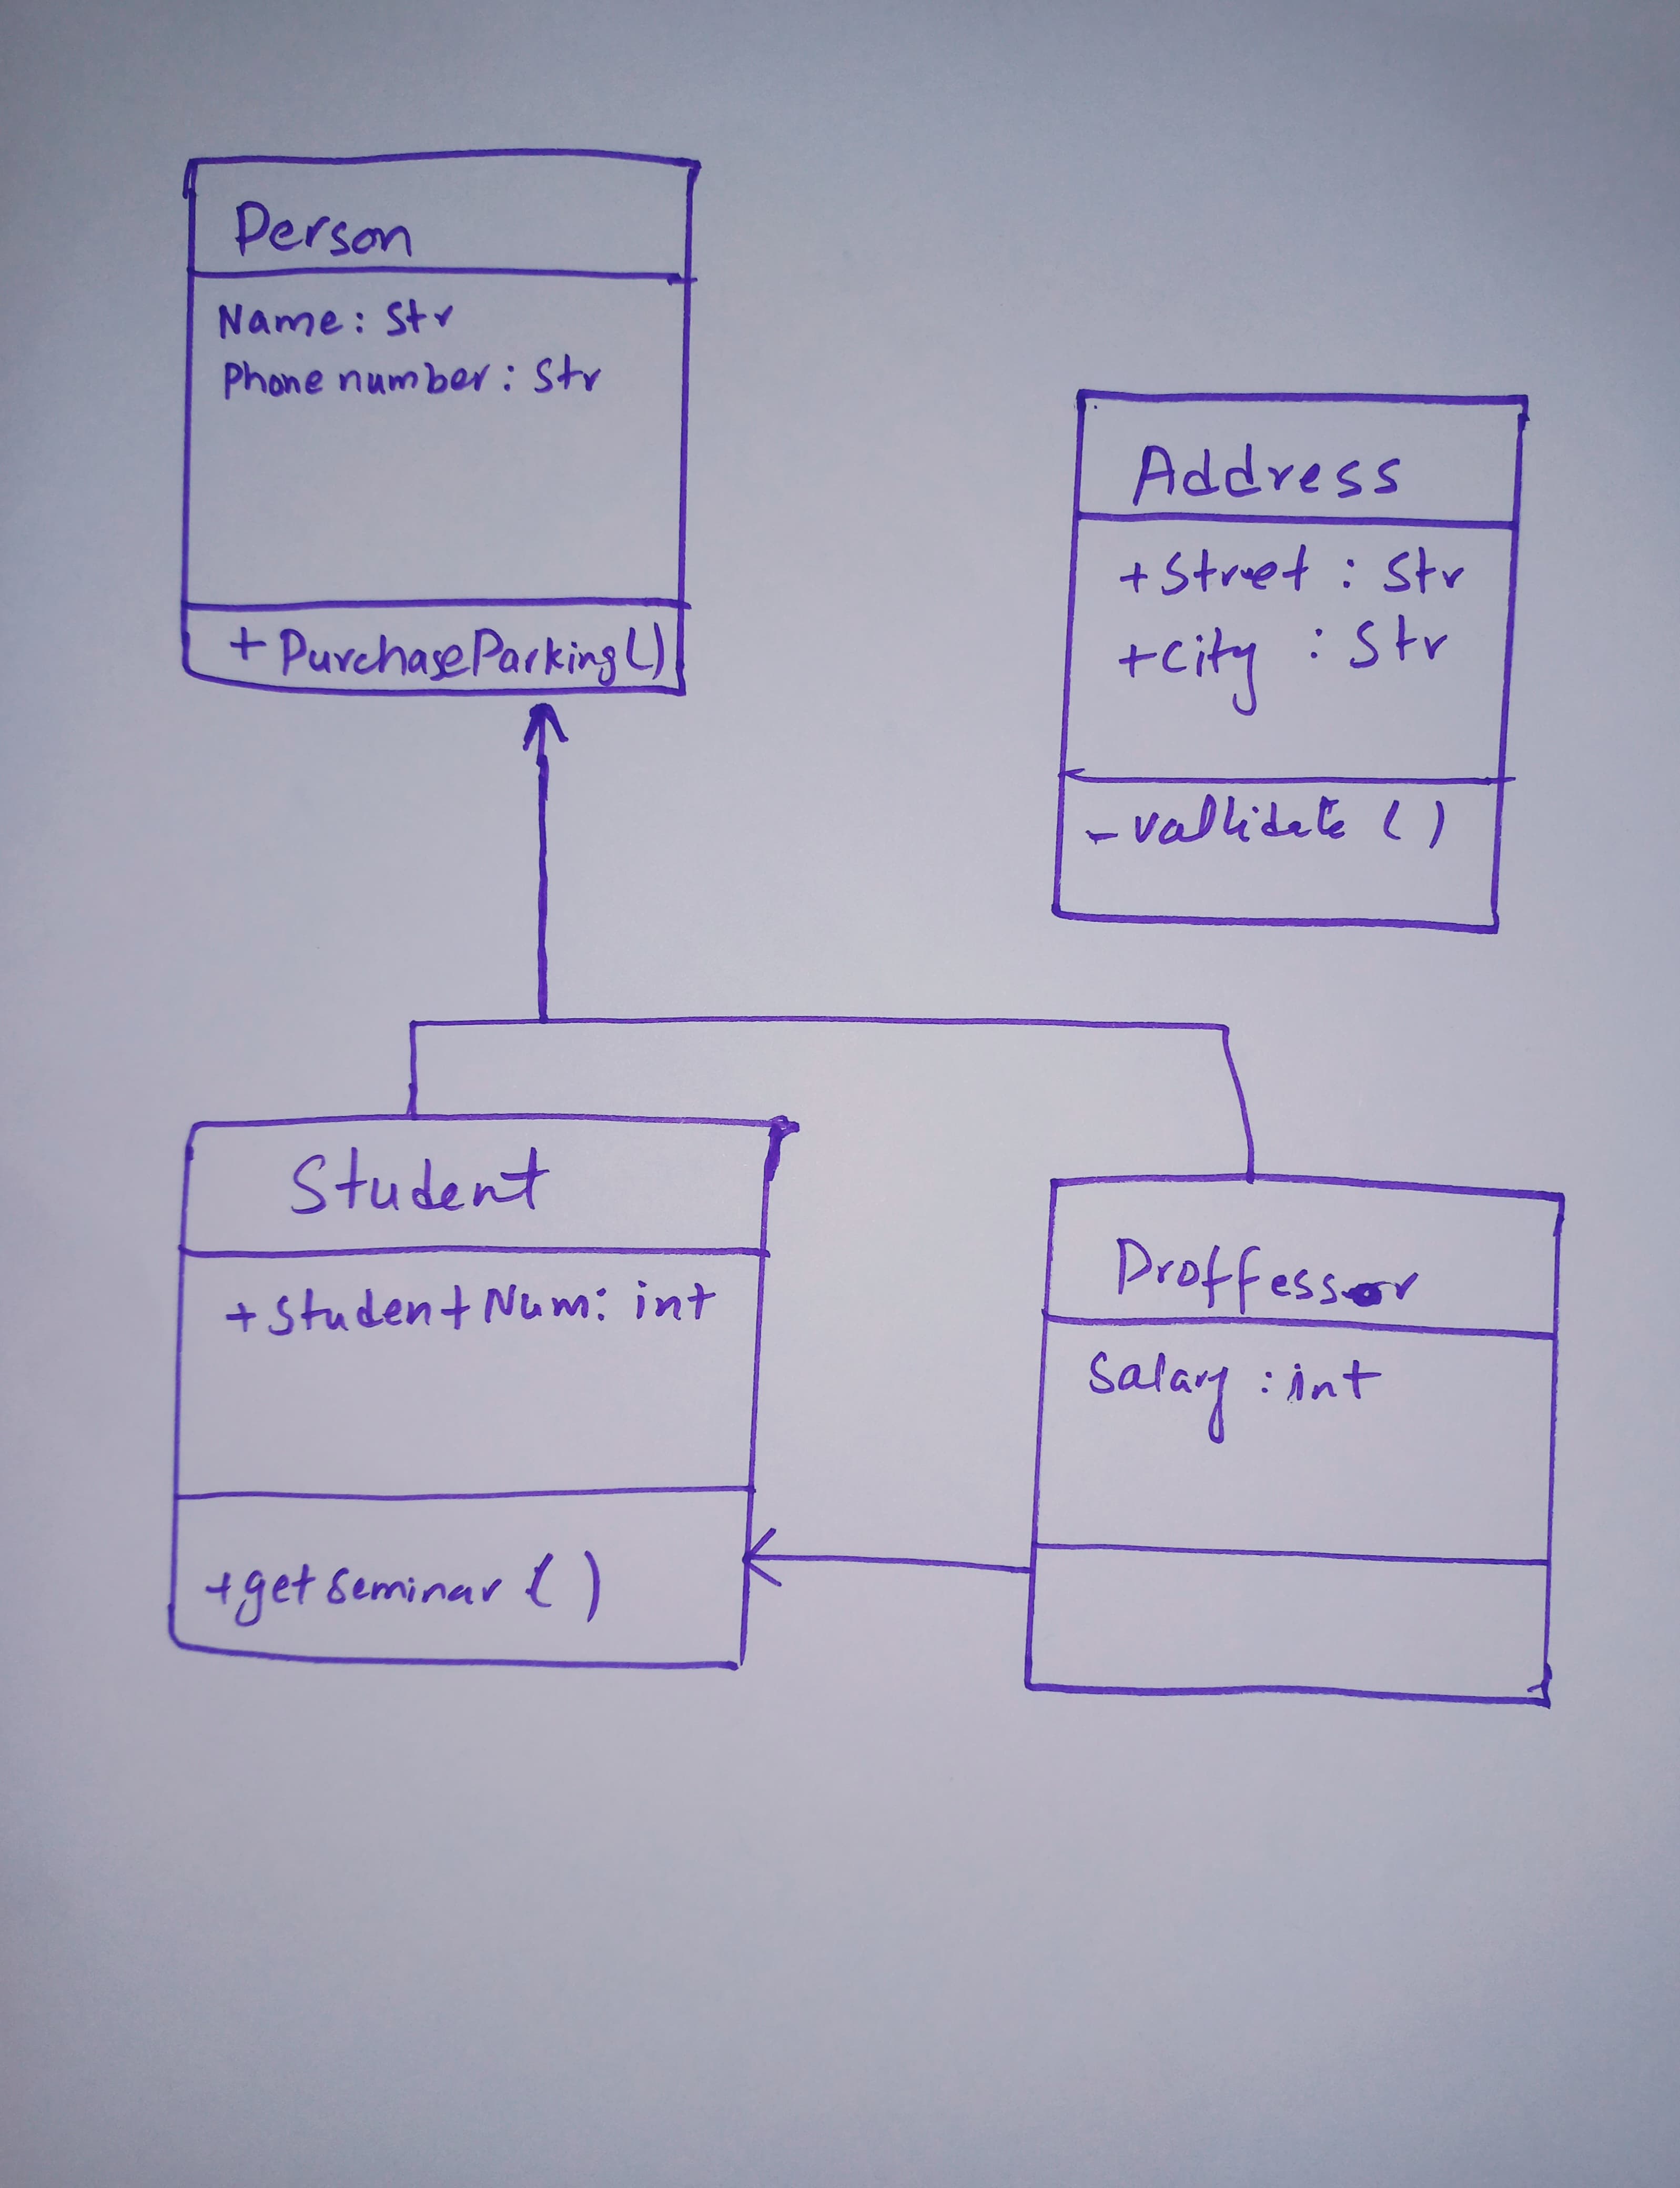 Person
Name: Str
Phone number: Str
+ PurchaseParking()
Address
+ Street : Str
+ City : Str
- vallidate ()
Student
+ Student Num: int
+ get seminar ()
Proffessor
Salary : int